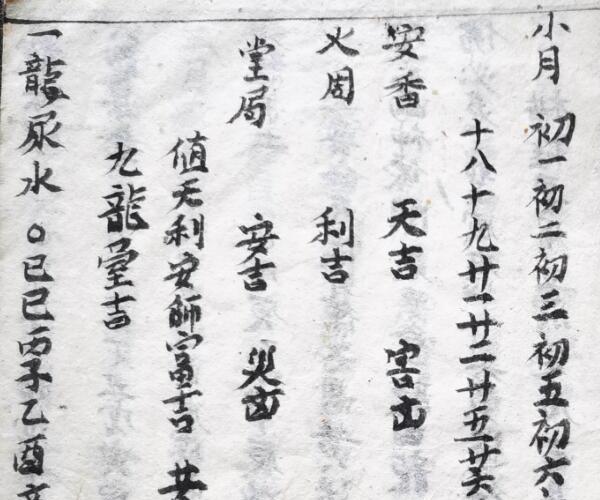 小月 初一初二初三初五初六
十八十九廿一廿二廿五廿六
安香 天吉 害凶
火周 利吉
堂局 安吉 災凶
值天利安師富吉
九龍堂吉
一龍尿水 ○己巳丙子乙酉